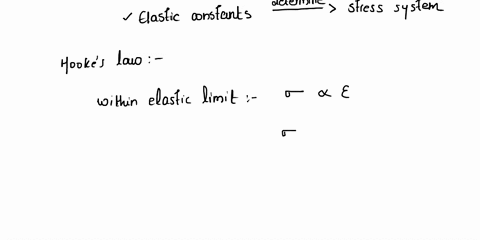 ✓ Elastic constants determine > stress system
Hooke's law :-
within elastic limit :- σ ∝ ε
σ